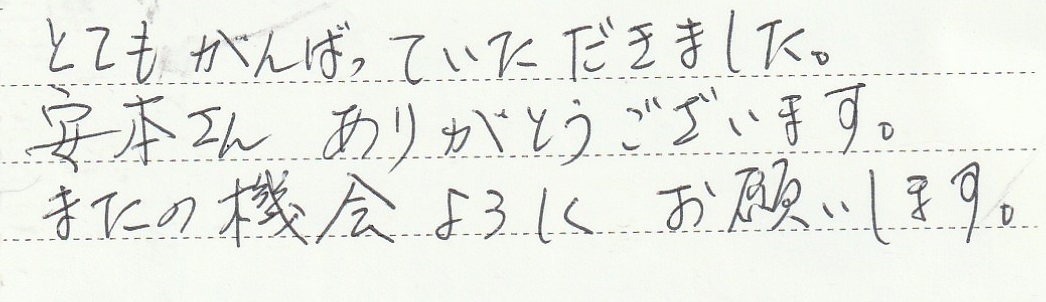 とてもがんばっていただきました。
安本さん ありがとうございます。
またの機会よろしく お願いします。